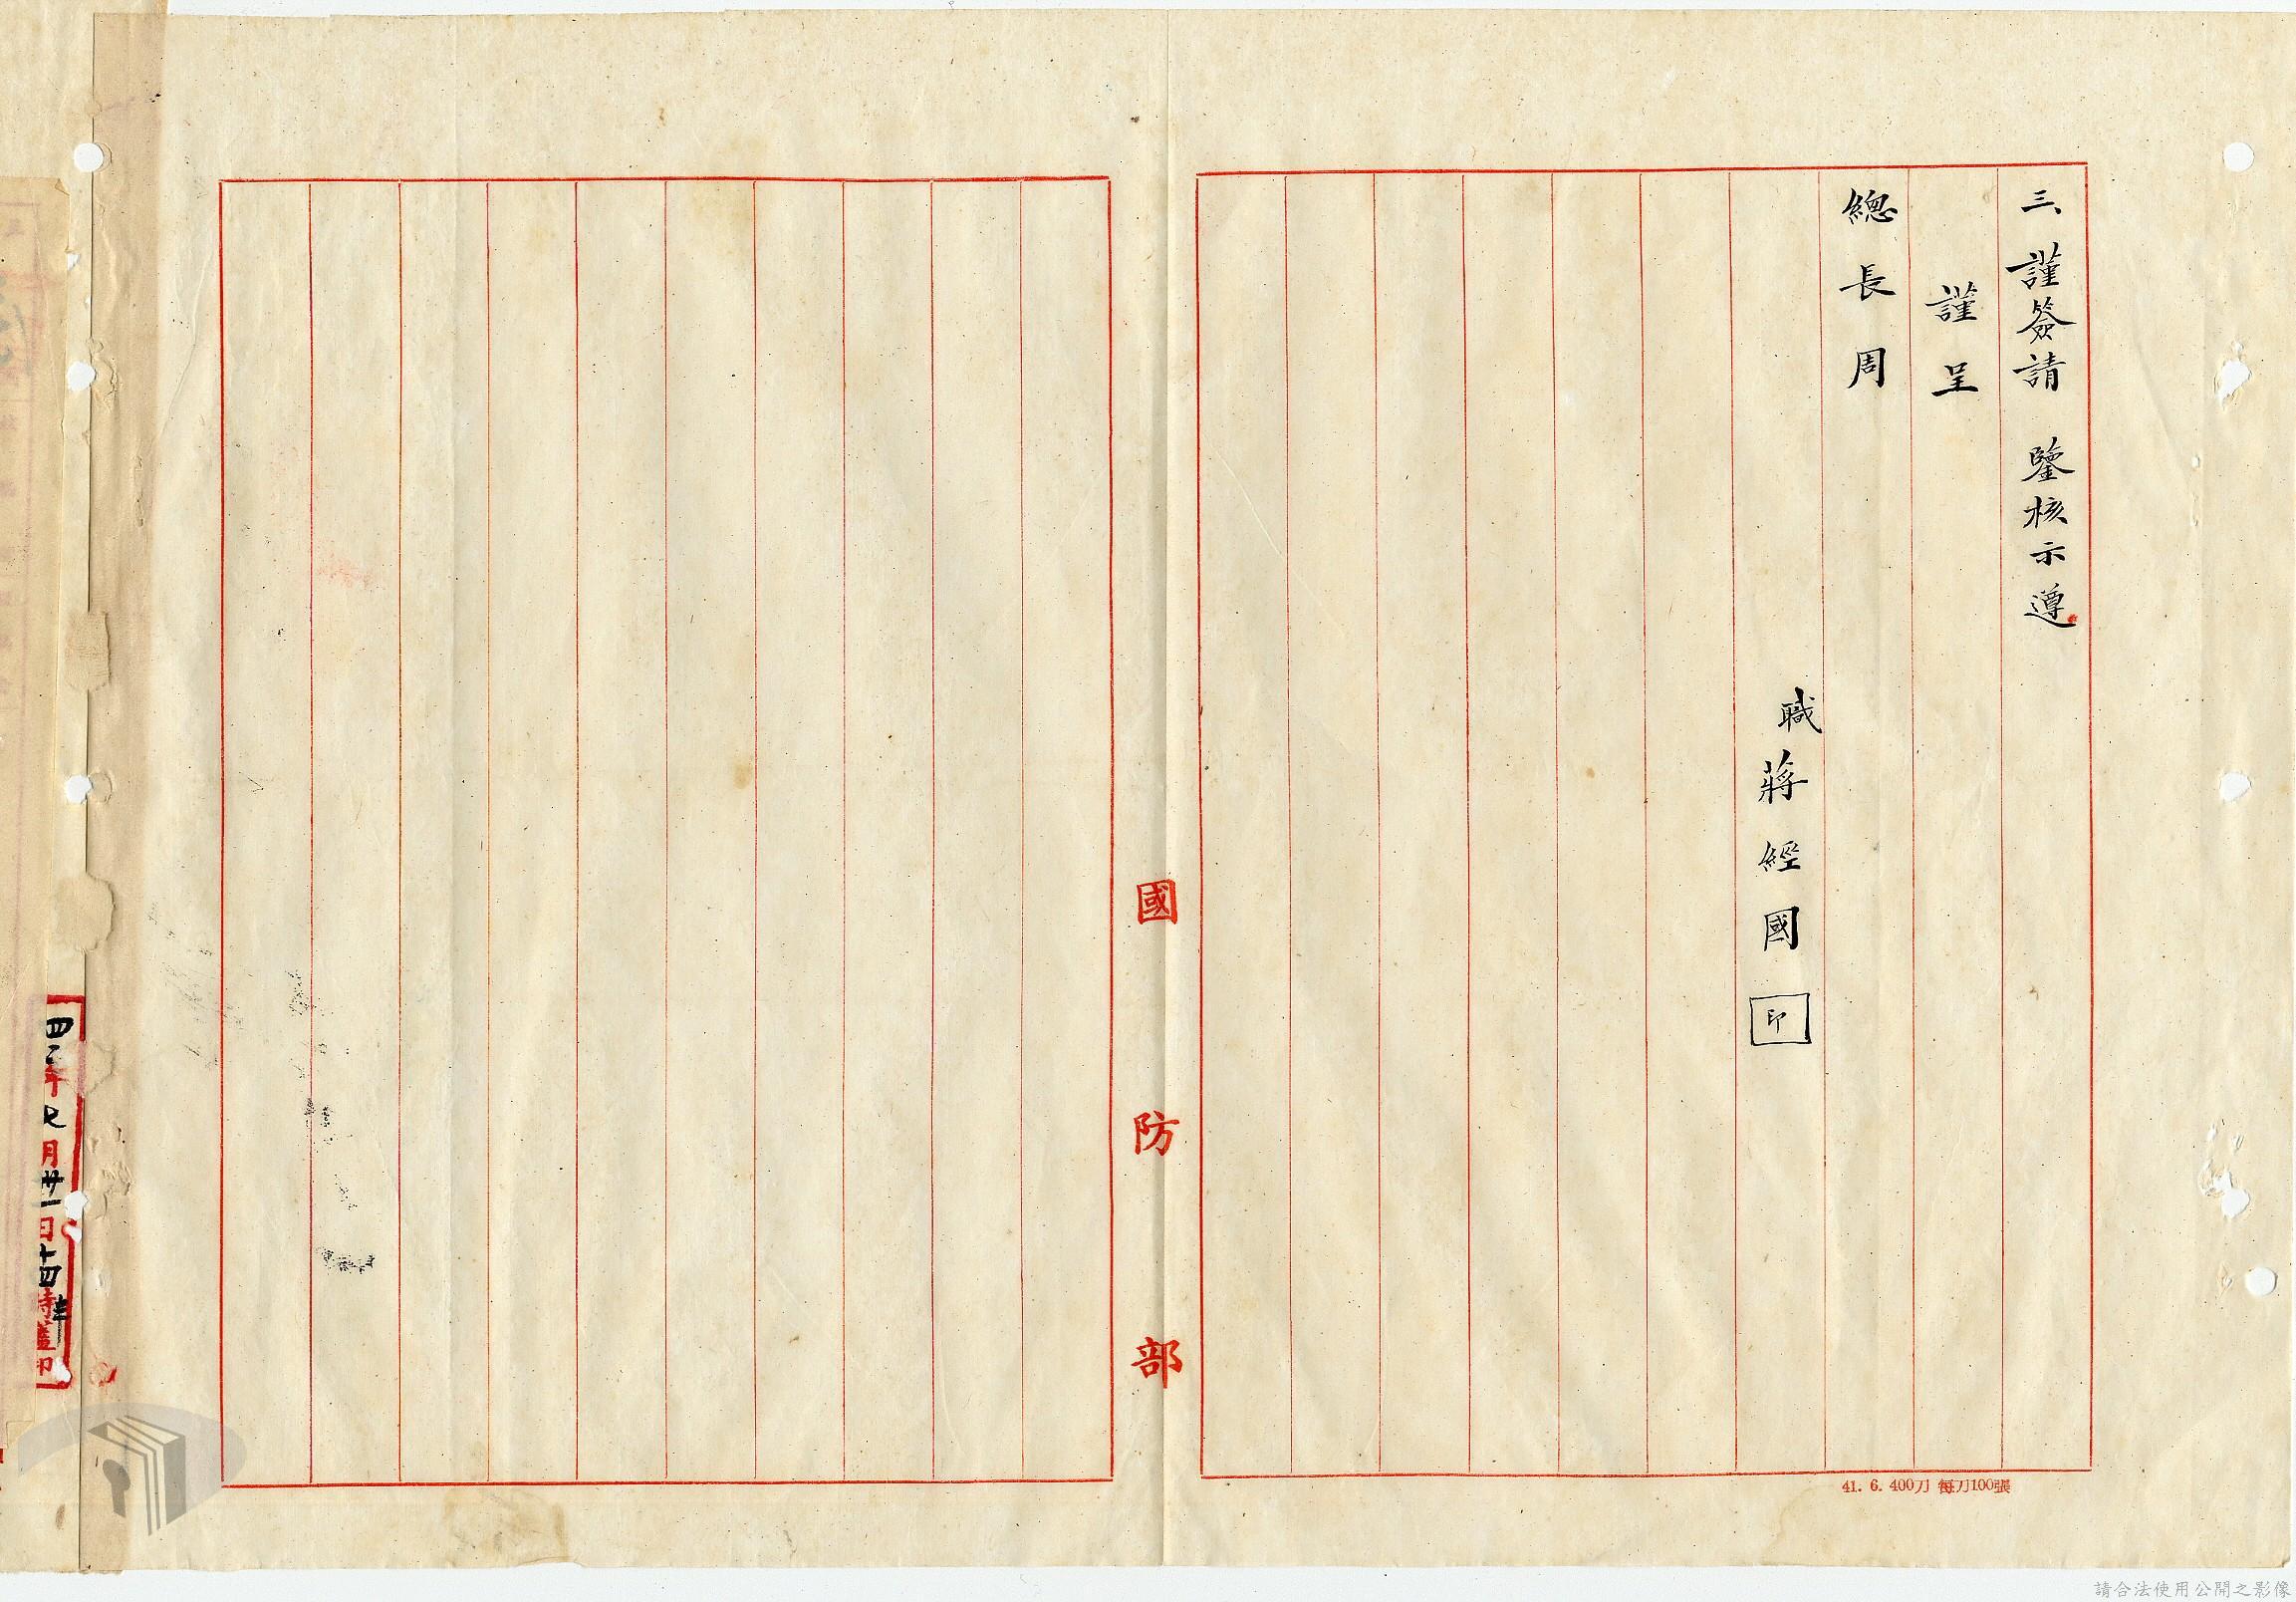 三、謹簽請　鑒核示遵
謹呈
總長周
職蔣經國印
國防部
41. 6. 400刀 每刀100張
四二年七月卅一日十四時蓋印
請合法使用公開之影像